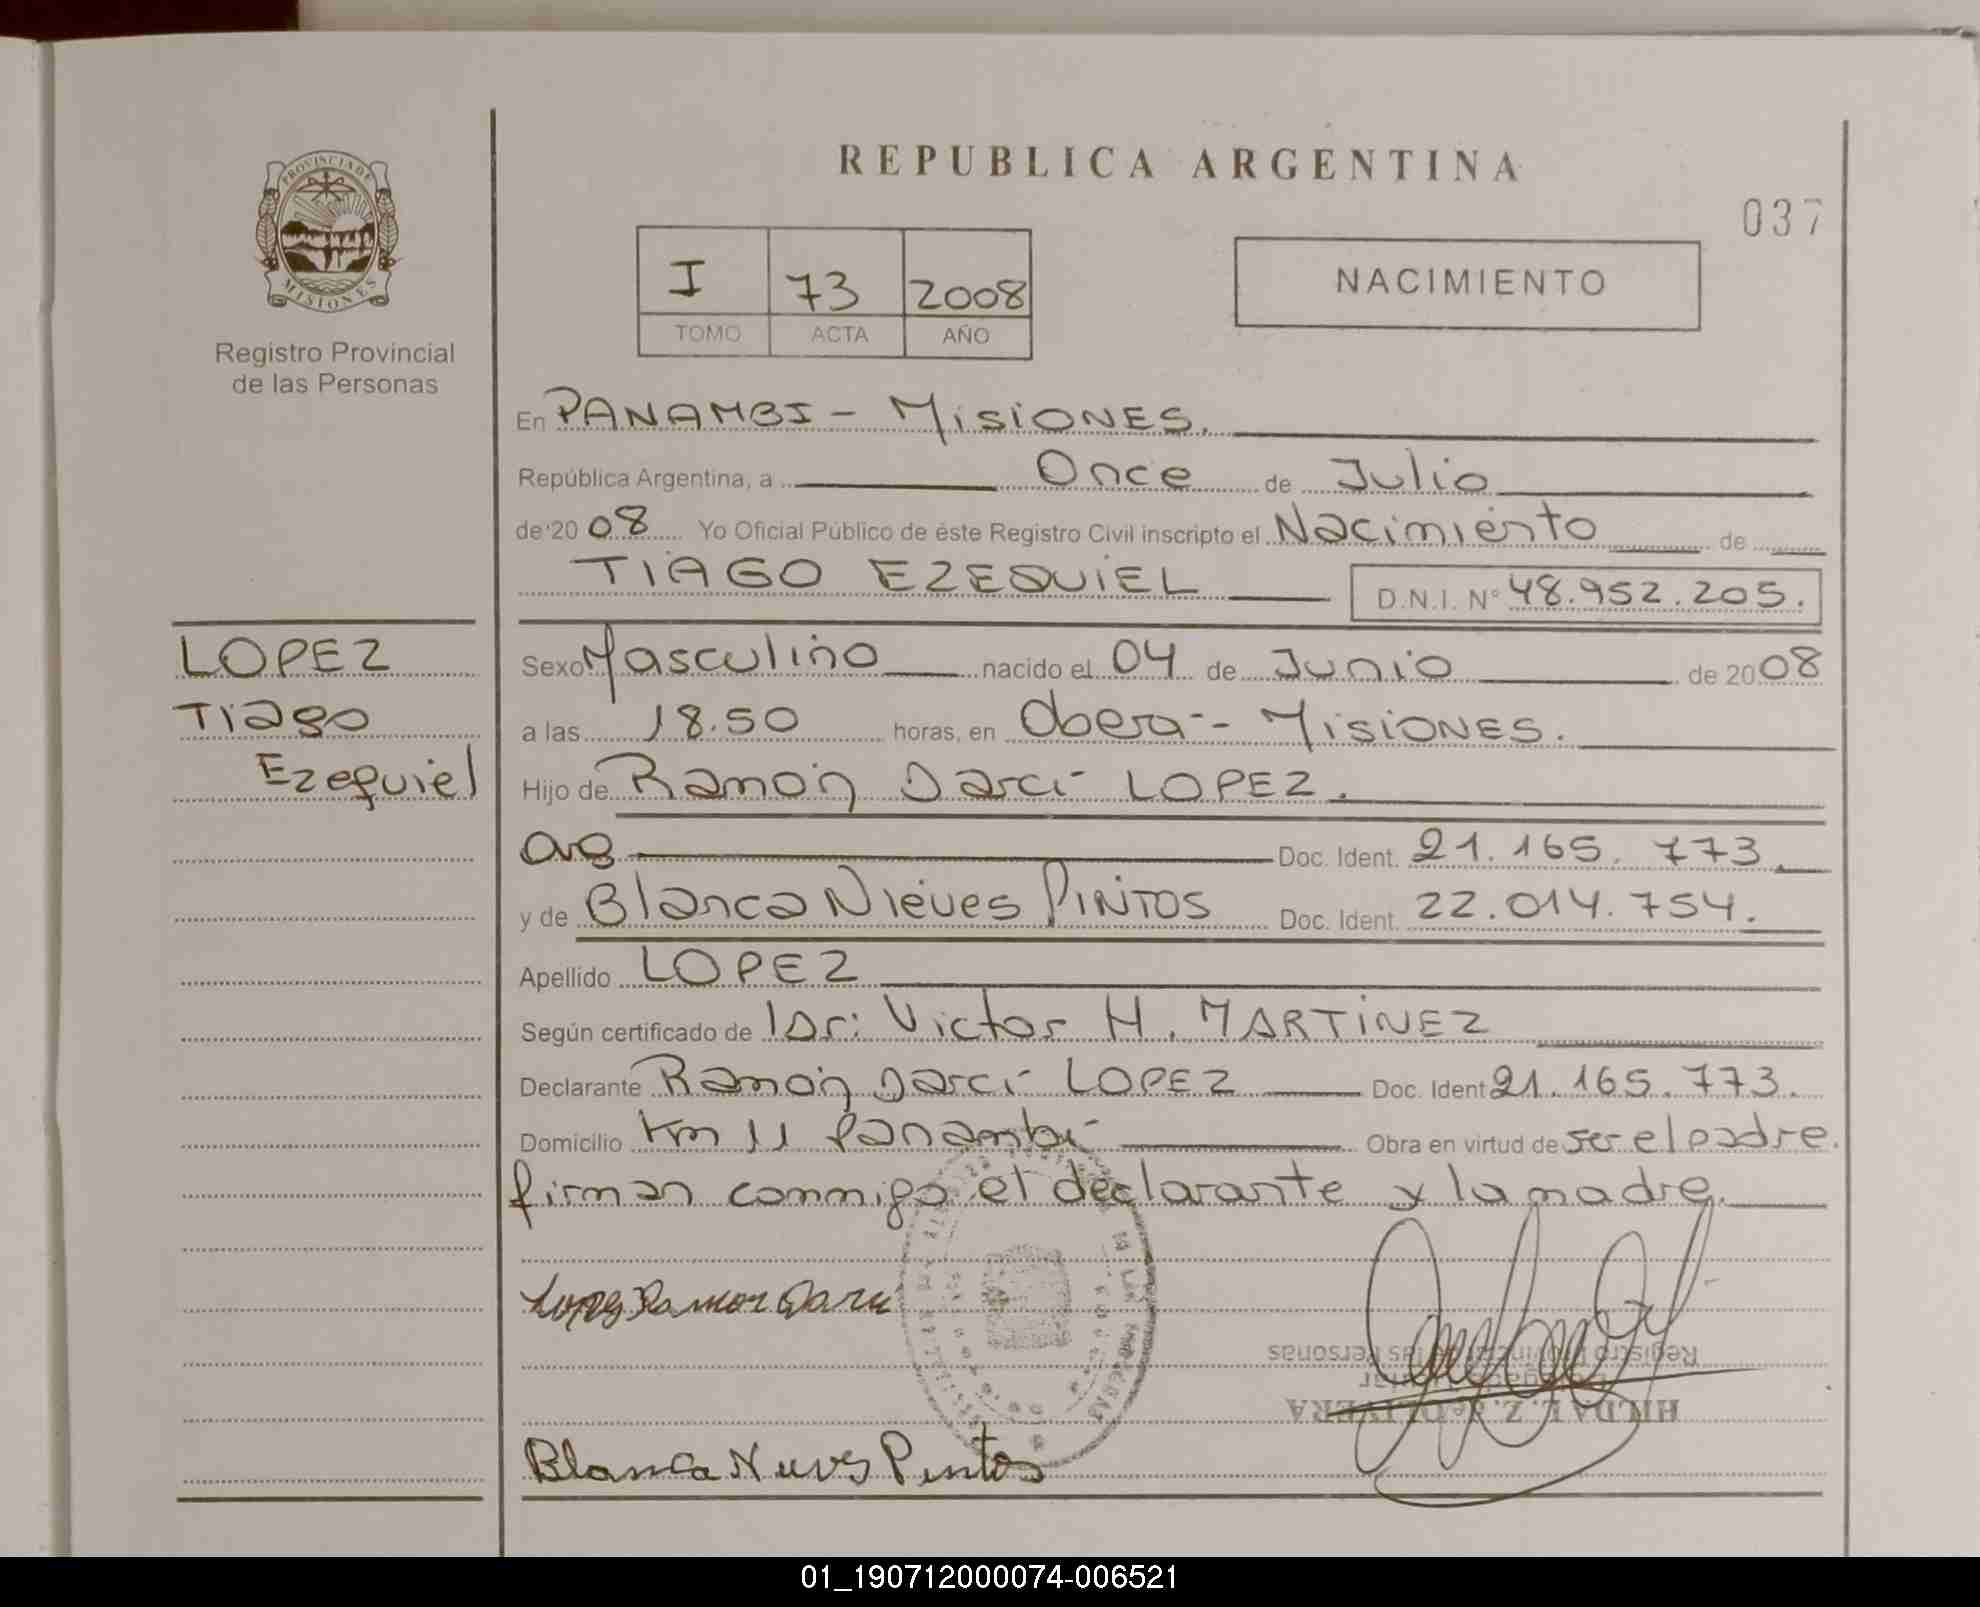 PROVINCIA DE
MISIONES
Registro Provincial
de las Personas
REPUBLICA ARGENTINA
037
I 73 2008
TOMO ACTA AÑO
NACIMIENTO
En PANAMBI - MISIONES.
República Argentina, a Once de Julio
de 2008 Yo Oficial Público de éste Registro Civil inscripto el Nacimiento de
TIAGO EZEQUIEL D.N.I. Nº 48.952.205.
LOPEZ
Tiago
Ezequiel
Sexo Masculino nacido el 04 de Junio de 2008
a las 18.50 horas, en Oberá - MISIONES.
Hijo de Ramón Darcí LOPEZ.
arg Doc. Ident. 21.165.773.
y de Blanca Nieves PINTOS Doc. Ident. 22.014.754.
Apellido LOPEZ
Según certificado de Dr: Victor H. MARTINEZ
Declarante Ramón Darcí LOPEZ Doc. Ident 21.165.773.
Domicilio Km 11 Panambí Obra en virtud de ser el padre.
firman conmigo el declarante y la madre.
Lopez Ramon Darci
Registro Provincial de las Personas
HILDA L. Z. de OLIVERA
Blanca Nieves Pintos
01_190712000074-006521